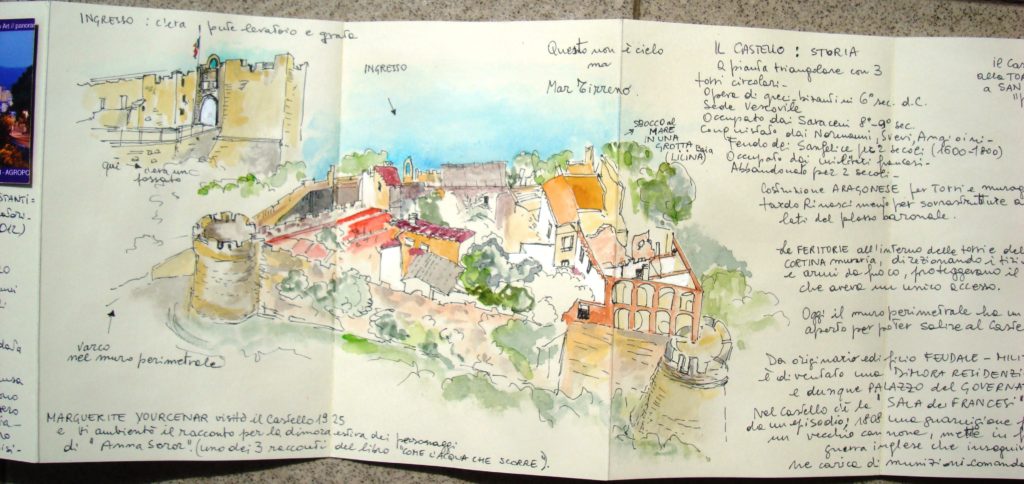 Art il panoram
I - AGROPO
INGRESSO : c'era ponte levatoio e grata
INGRESSO
Questo non è cielo
ma
Mar Tirreno.
qui c'era un
fossato
SBOCCO al
MARE
IN UNA
GROTTA Baia
(LICINA)
varco
nel muro perimetrale
MARGUERITE YOURCENAR visitò il Castello 1925
e vi ambientò il racconto per la dimora estiva dei personaggi
di "Anna Soror". (uno dei 3 racconti del libro "COME L'ACQUA CHE SCORRE").
IL CASTELLO : STORIA
a pianta triangolare con 3
torri circolari -
Opera di greci-bizantini 6° sec. d.C.
Sede Vescovile
Occupato dai Saraceni 8°-9° sec.
Conquistato dai Normanni, Svevi, Angioini -
Feudo dei Sanfelice per 2 secoli (1600-1800)
Occupato dai militari francesi -
Abbandonato per 2 secoli -
Costruzione ARAGONESE per Torri e murag
tardo Rinascimento per sovrastrutture a
lati del plesso baronale.
Le FERITORIE all'interno delle torri e del
CORTINA muraria, direzionando i tiri
e armi da fuoco, proteggevano il
che aveva un unico accesso.
Oggi il muro perimetrale ha un
aperto per poter salire al Caste
Da originario edificio FEUDALE - MILIT
è diventato una DIMORA RESIDENZI
e dunque PALAZZO del GOVERNA
Nel Castello c'è la "SALA dei FRANCESI"
da un episodio; 1808 una guarnigione f
un vecchio cannone, mette in f
guerra inglese che inseguiv
ne carica di munizioni comanda
il Cas
alla TOR
a SAN